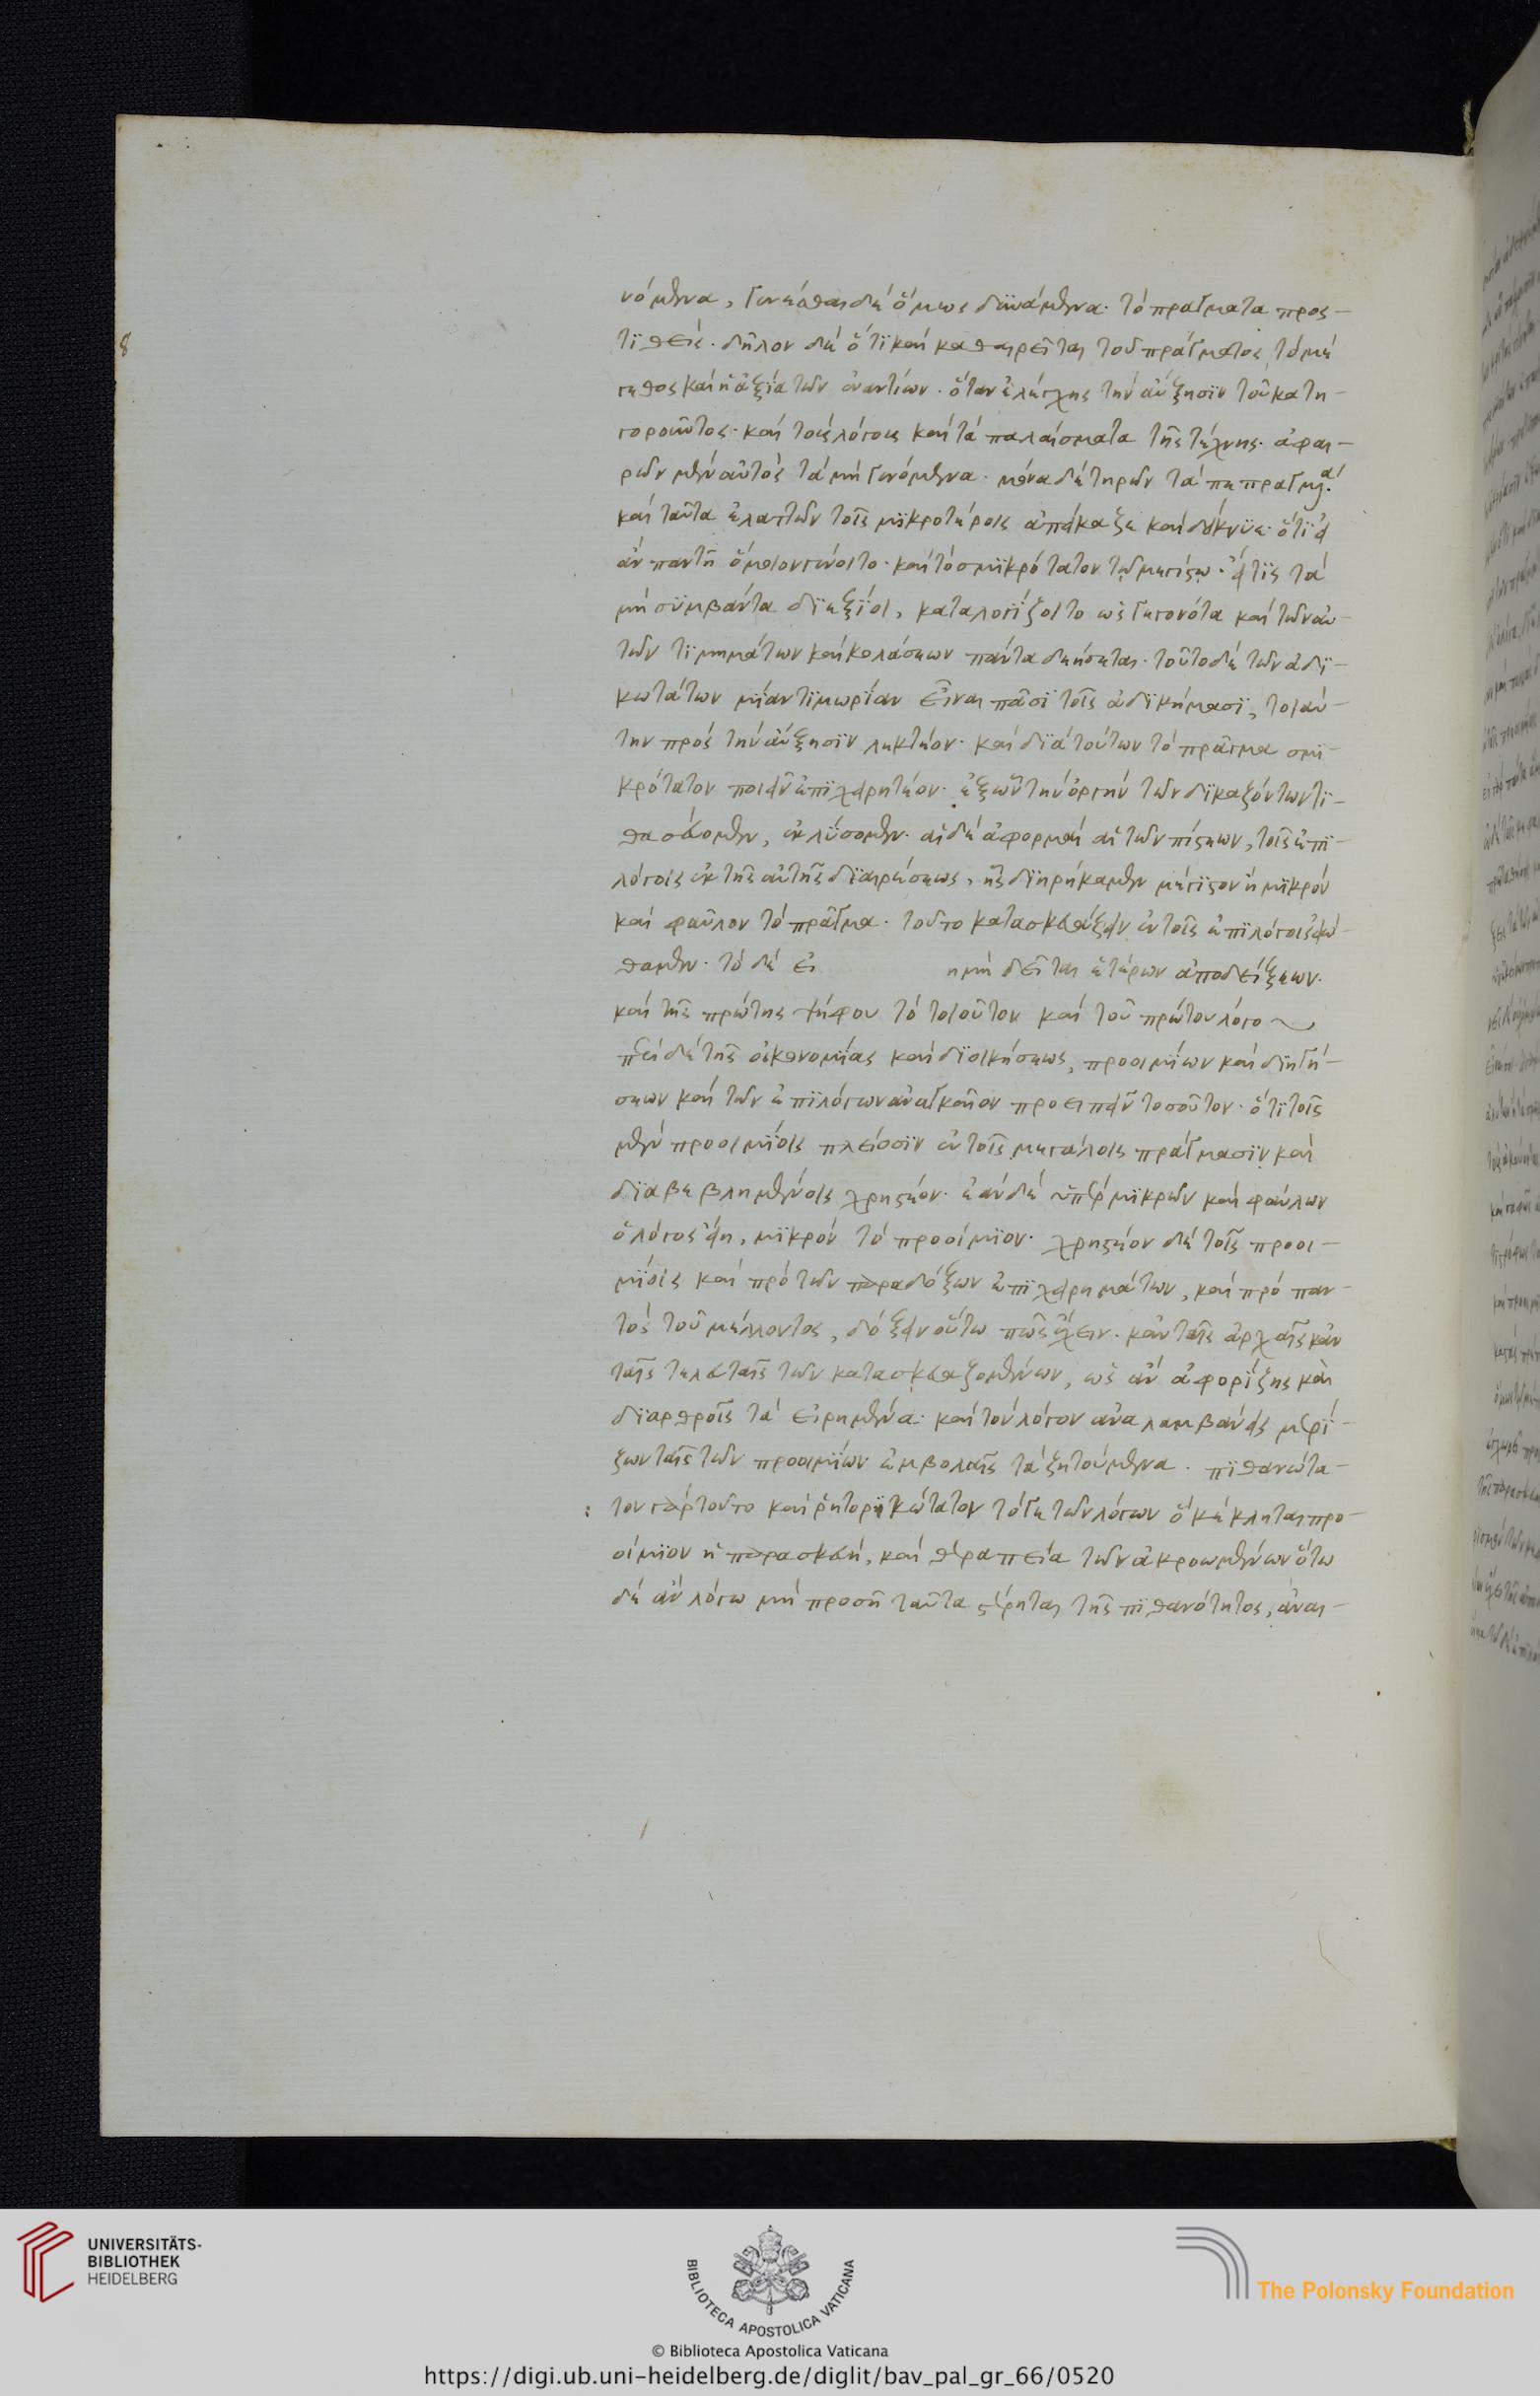 νόμενα, γενέσθαι δὲ ὅμως δυνάμενα· τὸ πράγματα προσ-
τιθείς. δῆλον δὲ ὅτι καὶ καθαιρεῖται τοῦ πράγματος τὸ μέ
γεθος καὶ ἡ ἀξία τῶν ἐναντίων. ὅταν ἐλέγχῃς τὴν αὔξησιν τοῦ κατη-
γοροῦντος· καὶ τοῖς λόγοις καὶ τὰ παλαίσματα τῆς τέχνης. ἀφαι-
ρῶν μὲν αὐτὸς τὰ μὴ γενόμενα. μόνα δὲ τηρῶν τὰ πεπραγμένα.
καὶ ταῦτα ἐλαττῶν τοῖς μικροτέροις ἀπείκαζε καὶ δείκνυε· ὅτι εἰ
ἀν παντὶ ὅμοιον γένοιτο. καὶ τὸ σμικρότατον τῷ μεγίστῳ. εἴ τις τὰ
μὴ συμβάντα διεξίοι, καταλογίζοιτο ὡς γεγονότα καὶ τῶν αὐ-
τῶν τιμημάτων καὶ κολάσεων πάντα δεήσεται. τοῦτο δὲ τῶν ἀδι-
κωτάτων μίαν τιμωρίαν εἶναι πᾶσι τοῖς ἀδικήμασι, τοιαύ-
την πρὸς τὴν αὔξησιν λεκτέον· καὶ διὰ τούτων τὸ πρᾶγμα σμι-
κρότατον ποιεῖν ἐπιχειρητέον. ἐξ ὧν τὴν ὀργὴν τῶν δικαζόντων τι-
θασεύομεν, ἐκλύσομεν. αἱ δὲ ἀφορμαὶ αἱ τῶν πίστεων, τοῖς ἐπι-
λόγοις ἐκ τῆς αὐτῆς διαιρέσεως, ἧς διῃρήκαμεν μέγιστον ἢ μικρὸν
καὶ φαῦλον τὸ πρᾶγμα. τοῦτο κατασκευάζειν ἐν τοῖς ἐπιλόγοις εἰώ-
θαμεν. τὸ δὲ εἰ ημὴ δεῖται ἑτέρων ἀποδείξεων.
καὶ τῆς πρώτης ψήφου τὸ τοιοῦτον καὶ τοῦ πρώτου λόγο
περὶ δὲ τῆς οἰκονομίας καὶ διοικήσεως, προοιμίων καὶ διηγή-
σεων καὶ τῶν ἐπιλόγων ἀναγκαῖον προειπεῖν τοσοῦτον. ὅτι τοῖς
μὲν προοιμίοις πλείοσιν ἐν τοῖς μεγάλοις πράγμασιν καὶ
διαβεβλημένοις χρηστέον. ἐὰν δὲ ὑπὲρ μικρῶν καὶ φαύλων
ὁ λόγος εἴη, μικρὸν τὸ προοίμιον. χρηστέον δὲ τοῖς προοι-
μίοις καὶ πρὸ τῶν παραδόξων ἐπιχειρημάτων, καὶ πρὸ παν-
τὸς τοῦ μέλλοντος, δόξειν οὕτω πῶς ἔχειν. κἀν ταῖς ἀρχαῖς κἀν
ταῖς τελευταῖς τῶν κατασκευαζομένων, ὡς ἂν ἀφορίζῃς καὶ
διαρθροῖς τὰ εἰρημένα· καὶ τὸν λόγον ἀναλαμβάνεις μερί-
ζων ταῖς τῶν προοιμίων ἐμβολαῖς τὰ ζητούμενα. πιθανώτα-
τον γὰρ τοῦτο καὶ ῥητορικώτατον τό γε τῶν λόγων ὃ κέκληται προ-
οίμιον ἡ παρασκευή, καὶ θεραπεία τῶν ἀκροωμένων ὅτῳ
δὲ ἂν λόγῳ μὴ προσῇ ταῦτα στέρηται τῆς πιθανότητος, ἀναι-
UNIVERSITÄTS-
BIBLIOTHEK
HEIDELBERG
BIBLIOTECA APOSTOLICA VATICANA
The Polonsky Foundation
© Biblioteca Apostolica Vaticana
https://digi.ub.uni-heidelberg.de/diglit/bav_pal_gr_66/0520